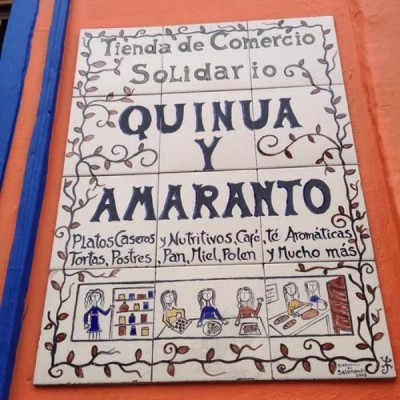 Tienda de Comercio
Solidario
QUINUA
Y
AMARANTO
Platos Caseros y Nutritivos, Café, té Aromáticas,
Tortas, Postres, Pan, Miel, Polen y Mucho más